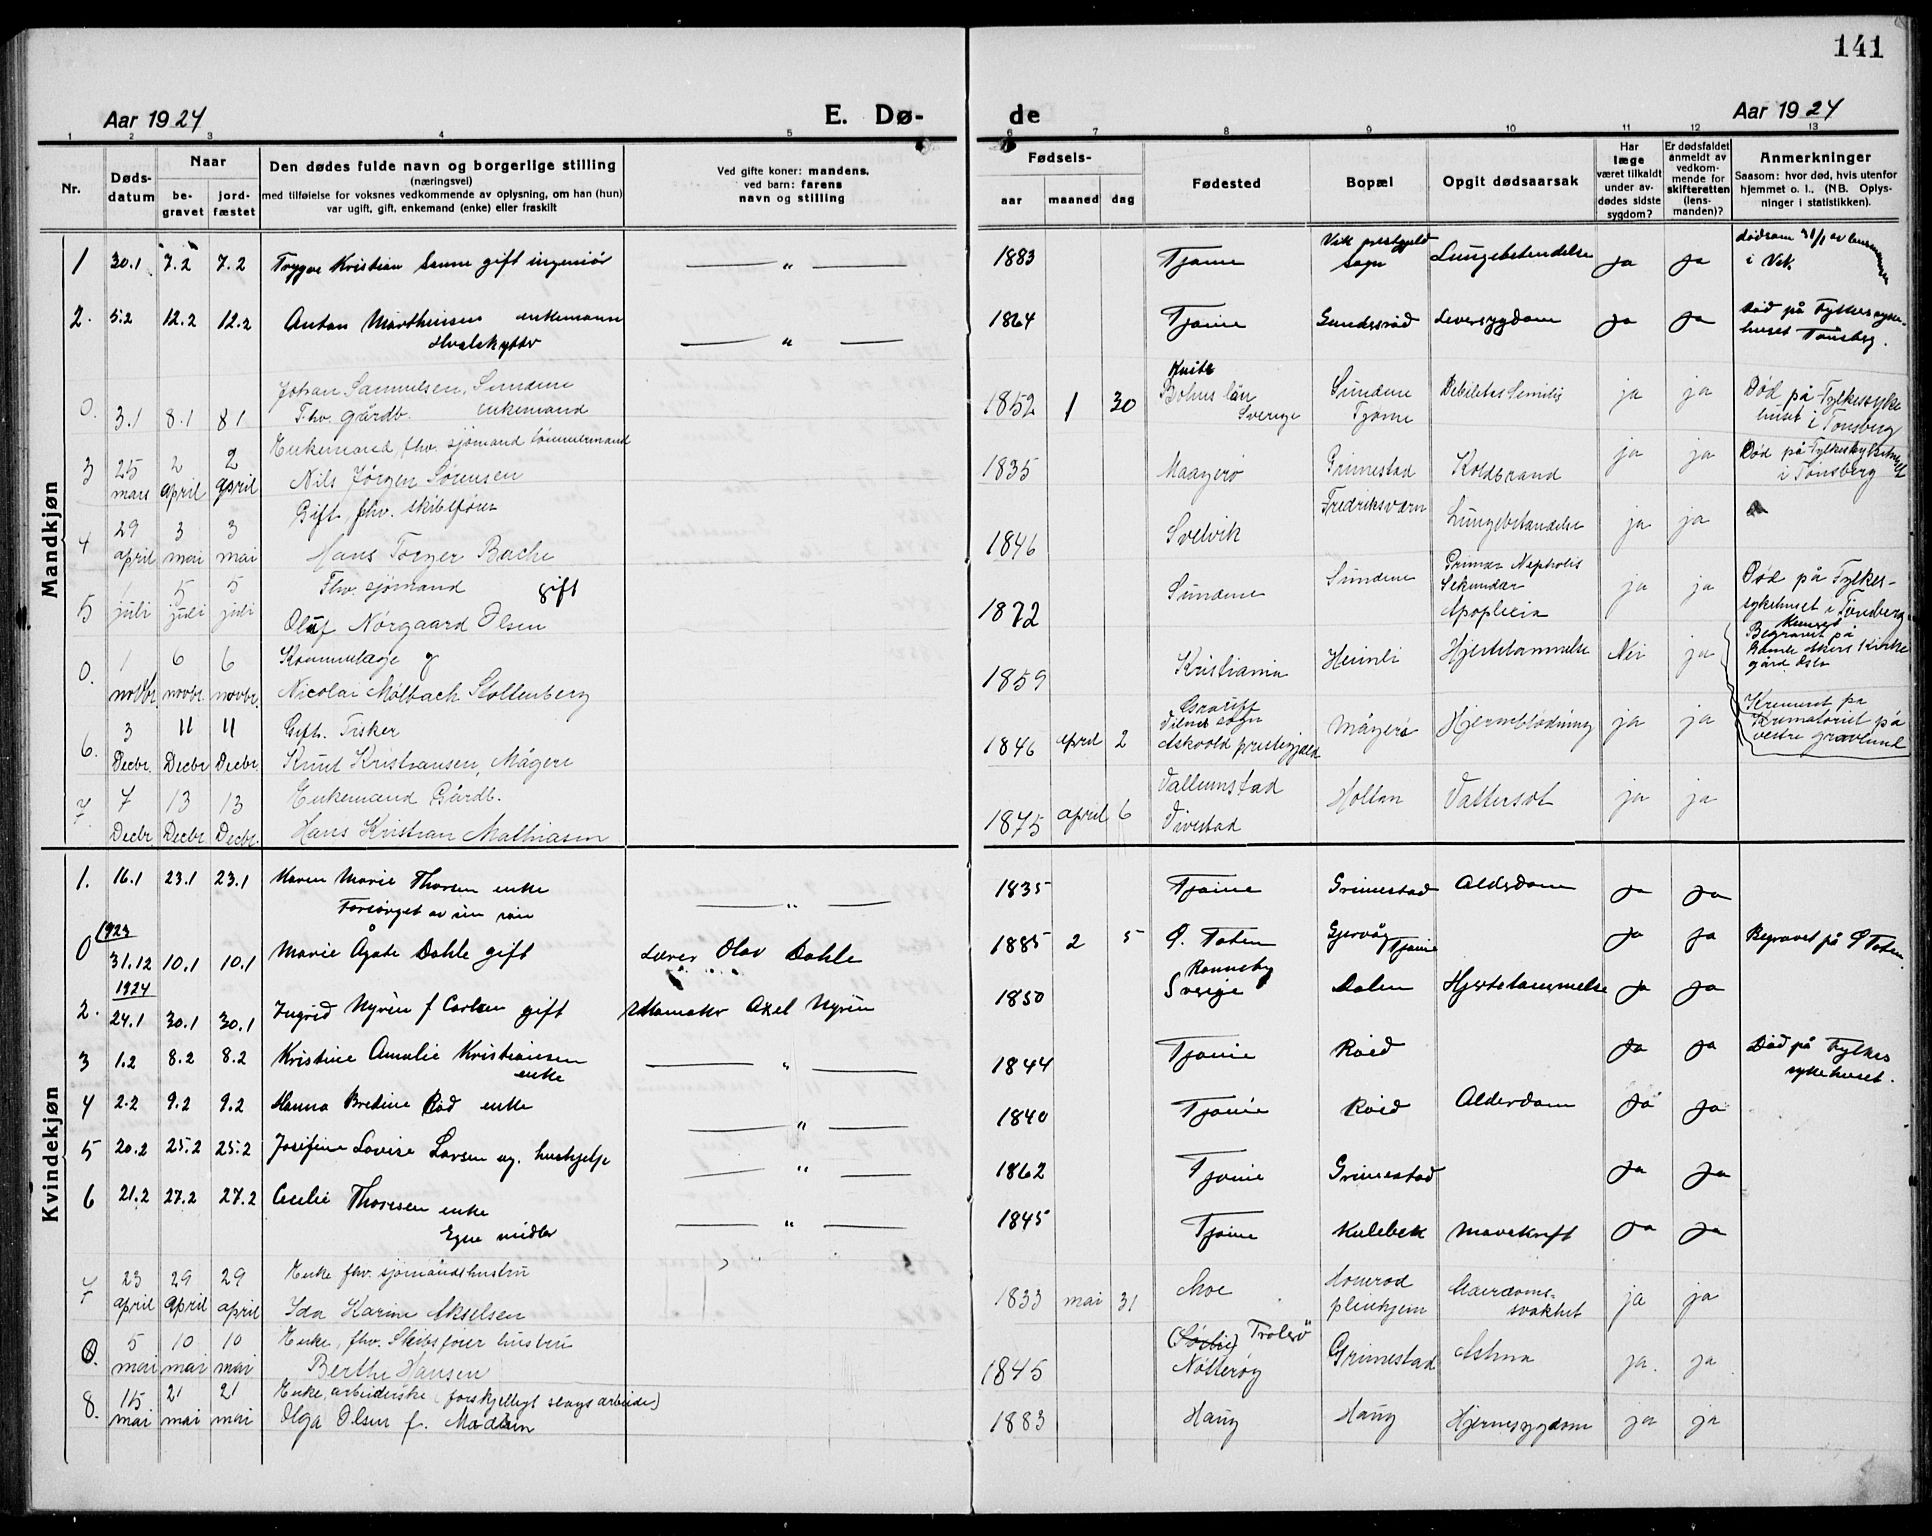 141
Aar 1924 E. Dø- de Aar 1924
1 2 3 4 5 6 7 8 9 10 11 12 13
Nr. Døds-datum Naar be-gravet jord-fæstet
Den dødes fulde navn og borgerlige stilling
(næringsvei)
med tilføielse for voksnes vedkommende av oplysning, om han (hun)
var ugift, gift, enkemand (enke) eller fraskilt
Ved gifte koner: mandens,
ved barn: farens
navn og stilling
Fødsels- aar maaned dag
Fødested
Bopæl
Opgit dødsaarsak
Har læge været tilkaldt under av-dødes sidste sygdom?
Er dødsfaldet anmeldt av vedkom-mende for skifteretten (lens-manden)?
Anmerkninger
Saasom: hvor død, hvis utenfor
hjemmet o. l., (NB. Oplys-
ninger i statistikken).
Mandkjøn
1 30.1 7.2 7.2 Trygve Kristian Sanne gift ingeniør — " — 1883 Tjøme Vik prestegjeld Sogn Lungebetendelse ja ja i Vik.
2. 5.2 12.2 12.2 Anton Marthinsen enkemann
Hvalskytter — " — 1864 Tjøme Gundersrød Leversygdom ja ja Død på Fylkessyke-
huset Tønsberg.
0. 3.1 8.1 8.1 Johan Samuelsen, Sundene
Fhv. gårdb. enkemand 1852 1 30 Bohus län Sverige Sundene Tjøme Debilitas Senilis ja ja Død på Fylkessyke
huset i Tønsberg
3 25 mars 2 april 2 april Enkemand, fhv. sjømand tømmermand
Nils Jørgen Sørensen 1835 Maagerø Grimestad Koldbrand ja ja Død på Fylkesykehuset
i Tønsberg
4 29 april 3 mai 3 mai Gift, fhv. skibsfører
Hans Torger Bache 1846 Svelvik Fredriksværn Lungebetændelse ja ja
5 1 juli 5 juli 5 juli Fhv. sjømand gift
Oluf Nørgaard Olsen 1872 Sundene Sundene Primær Nephritis
Sekundær
Apoplexia ja ja Død på Fylkes-
sykehuset i Tønsberg
0. 1 novbr. 6 novbr. 6 novbr.
Nicolai Mølbach Stoltenberg 1859 Kristiania Heimli Hjertelammelse Nei ja Begravet på
Gamle Akers Kirke
gård Oslo
6. 3 Decbr. 11 Decbr. 11 Decbr. Gift. Fisker
Knut Kristiansen, Mågerø 1846 april 2 Askvold prestegjeld Mågerø Hjerneblødning ja ja Kremeret på
Krematoriet på
vestre gravlund
7. 7 Decbr. 13 Decbr. 13 Decbr. Enkemand Gårdb.
Hans Kristian Mathiasen 1875 april 6 Holtan Vattersot ja ja
Kvindekjøn
1. 16.1 23.1 23.1 Karen Marie Thorsen enke
Forsørget av sin søn — " — 1835 Tjøme Grimestad Alderdom ja ja
0 1923 31.12 10.1 10.1 Marie Ågate Dahle gift Lærer Olav Dahle 1885 2 5 Ø. Toten Gjervåg Tjøme ja ja Begravet på Ø Toten.
2. 1924 24.1 30.1 30.1 Ingrid Nyrén f Carlsen gift Axel Nyrén 1850 Ronneby Sverige Dalen Hjertelammelse ja ja
3 1.2 8.2 8.2 Kristine Amalie Kristiansen
enke — " — 1844 Tjøme Røed ja ja Død på Fylkes
sykehuset.
4 2.2 9.2 9.2 Hanna Bredine Rød enke — " — 1840 Tjøme Røed Alderdom ja ja
5 20.2 25.2 25.2 Josefine Lovise Larsen ug. hushjelp — " — 1862 Tjøme Grimestad ja ja
6 21.2 27.2 27.2 Cecilie Thoresen enke
Egne midler — " — 1845 Tjøme Kulebek Mavekreft ja ja
7 23 april 29 april 29 april Enke fhv. sjømandshustru
Ida Karine Akselsen 1833 mai 31 Moe pleiehjem ja ja
0. 5 mai 10 mai 10 mai Enke, fhv. Skibsfører hustru
Berthe Hansen 1845 Nøtterøy Grimestad Astma ja. ja
8. 15 mai 21 mai 21 mai Enke, arbeiderske (forskjelligt slags arbeide)
Olga Olsen f. Madsen 1883 Haug Haug Hjernesygdom ja ja